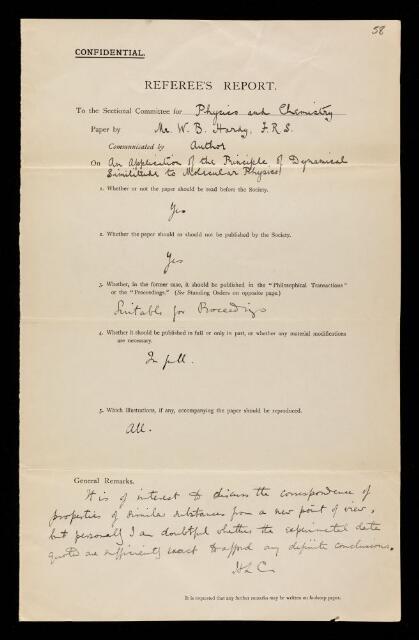 58
CONFIDENTIAL.
REFEREE'S REPORT.
To the Sectional Committee for Physics and Chemistry
Paper by Mr. W. B. Hardy, F.R.S.
Communicated by Author
On An Application of the Principle of Dynamical
Similitude to Molecular Physics
1. Whether or not the paper should be read before the Society.
Yes
2. Whether the paper should or should not be published by the Society.
Yes
3. Whether, in the former case, it should be published in the "Philosophical Transactions"
or the "Proceedings." (See Standing Orders on opposite page.)
Suitable for Proceedings
4. Whether it should be published in full or only in part, or whether any material modifications
are necessary.
In full.
5. Which illustrations, if any, accompanying the paper should be reproduced.
All.
General Remarks.
It is of interest to discuss the correspondence of
properties of similar substances from a new point of view,
but personally I am doubtful whether the experimental data
quoted are sufficiently exact to afford any definite conclusions.
H L C
It is requested that any further remarks may be written on foolscap paper.